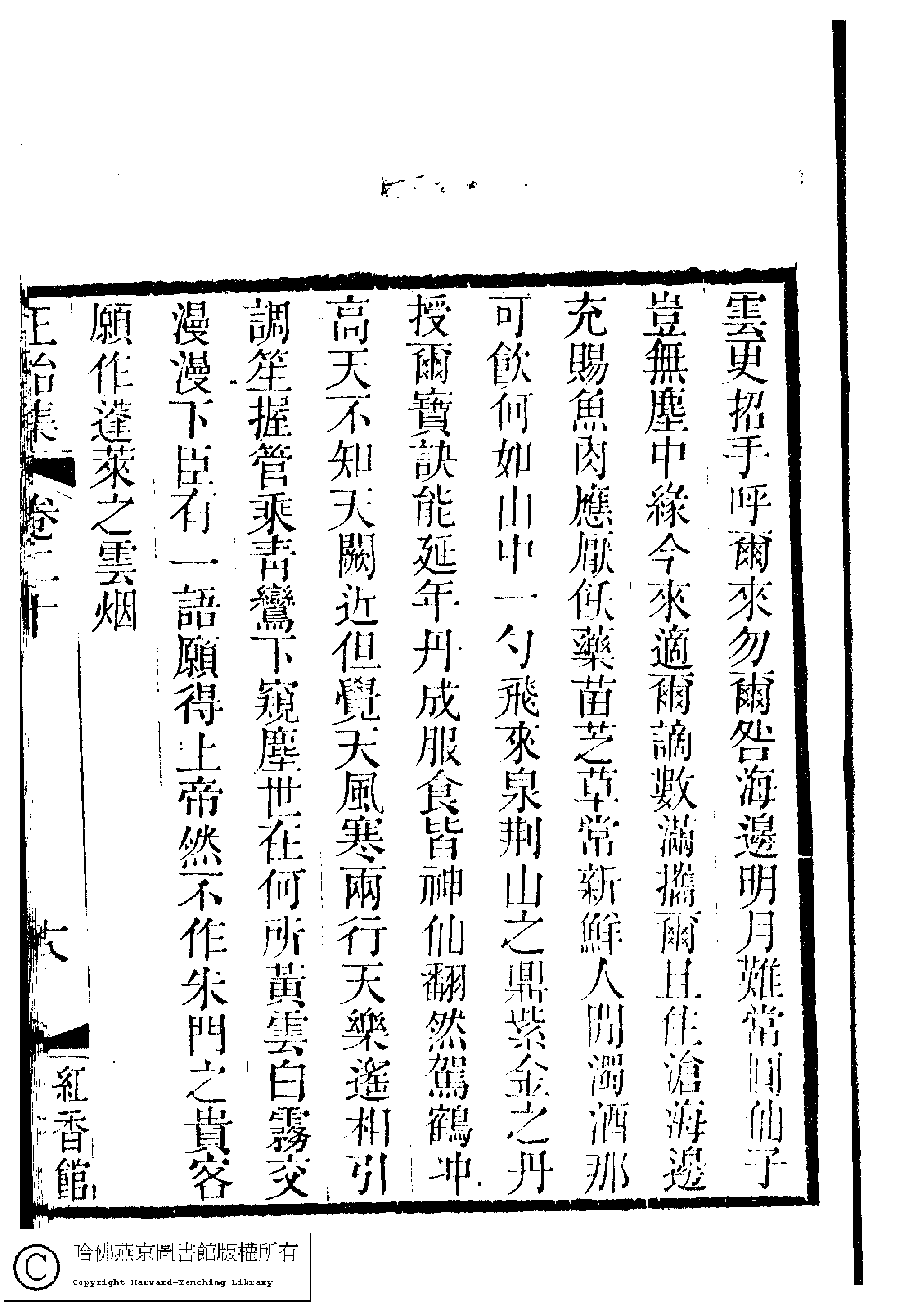 雲更招手呼爾來勿爾咎海邊明月難常圓仙子
豈無塵中緣今來適爾謫數滿攜爾且住滄海邊
充賜魚肉應厭飫藥苗芝草常新鮮人閒濁酒那
可飲何如山中一勺飛來泉荆山之鼎紫金之丹
授爾寶訣能延年丹成服食皆神仙翻然駕鶴冲
高天不知天闕近但覺天風寒兩行天樂遙相引
調笙握管乘青鸞下窺塵世在何所黃雲白霧交
漫漫下臣有一語願得上帝然不作朱門之貴客
願作蓬萊之雲烟
卷二十
紅香館
哈佛燕京圖書館版權所有
Copyright Harvard-Yenching Library